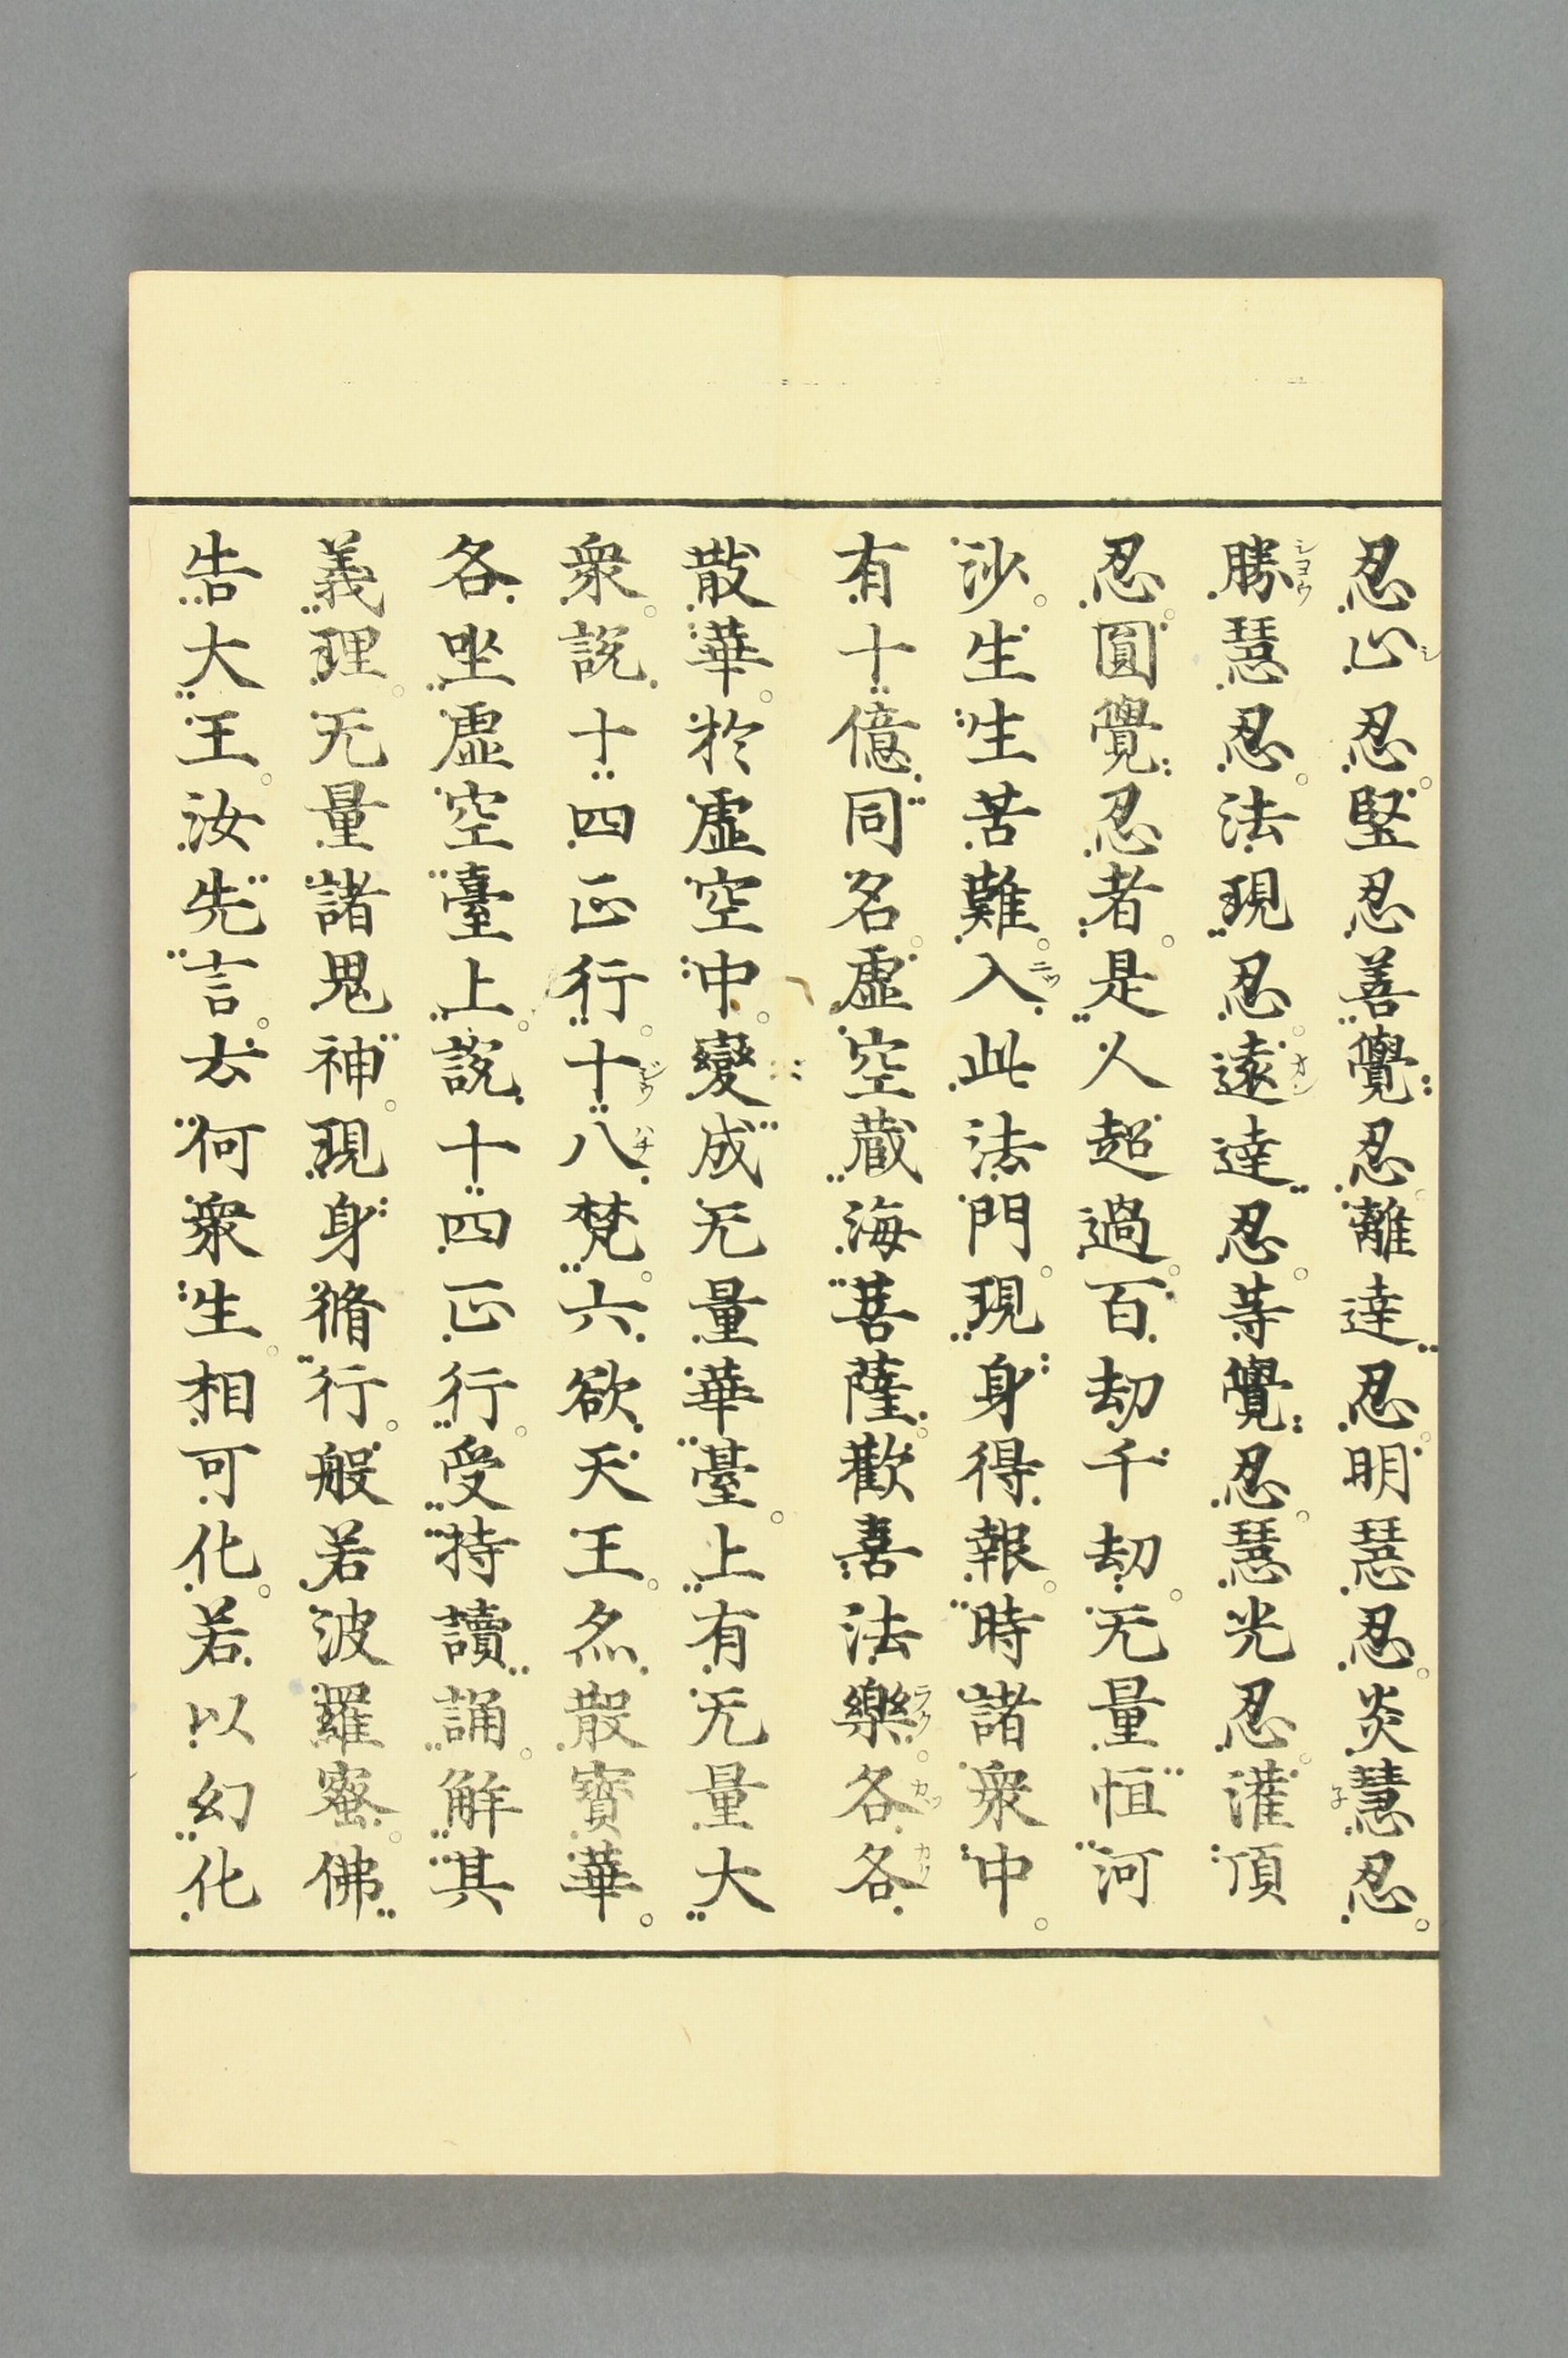 忍止忍。堅忍善覺忍。離達忍。明慧忍。炎慧忍。
勝慧忍。法現忍。遠達忍。等覺忍。慧光忍。灌頂
忍。圓覺忍者。是人超過。百劫千劫。无量恒河
沙。生生苦難。入此法門。現身得報。時諸衆中。
有十億同名。虛空藏海菩薩。歡喜法樂。各各
散華。於虛空中。變成无量華臺。上有无量大
衆。說十四正行。十八梵。六欲天王。亦散寶華。
各坐虛空臺上。說十四正行。受持讀誦。解其
義理。无量諸鬼神。現身脩行。般若波羅蜜。佛
告大王。汝先言。云何衆生。相可化。若以幻化